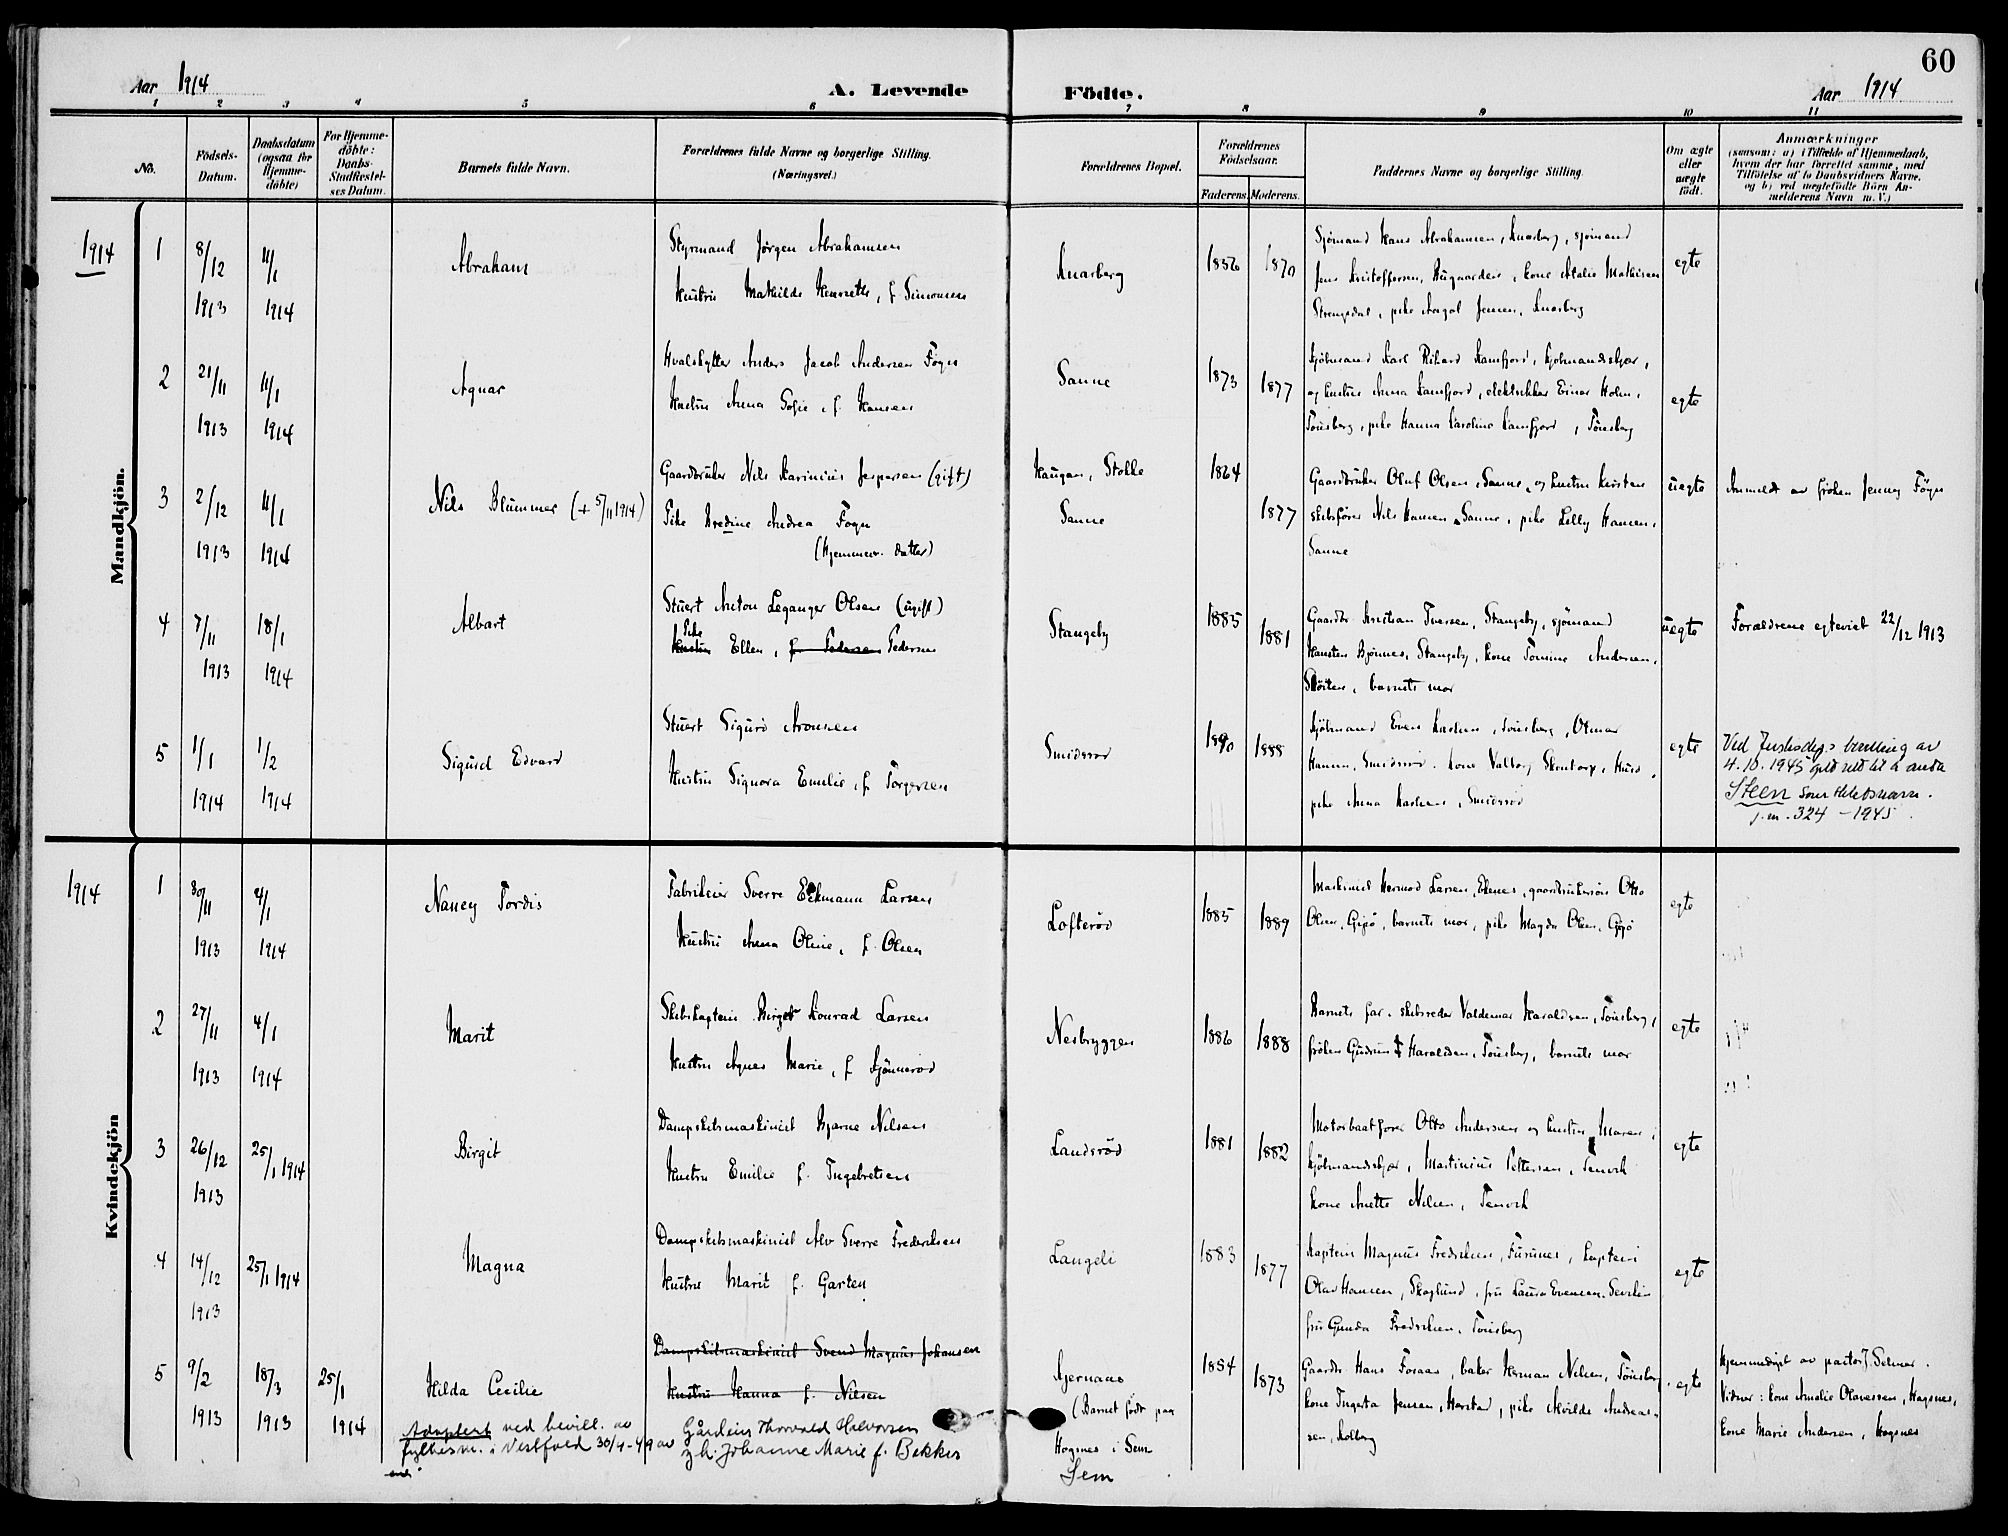 60
Aar 1914
A. Levende
Födte.
Aar 1914
1 2 3 4 5 6 7 8 9 10 11
No.
Födsels-Datum.
Daabsdatum (ogsaa for Hjemme-döbte)
For Hjemme-döbte: Daabs-Stadfestel-ses Datum.
Barnets fulde Navn.
Forældrenes fulde Navne og borgerlige Stilling. (Næringsvei.)
Forældrenes Bopæl.
Forældrenes Födselsaar.
Faderens. Moderens.
Faddernes Navne og borgerlige Stilling.
Om ægte eller uægte födt.
Anmærkninger
(saasom: a) i Tilfælde af Hjemmedaab,
hvem der har forrettet samme, med
Tilföielse af to Daabsvidners Navne.
og b) ved uægtefödte Börn An-
melderens Navn m. V.)
Mandkjön.
1914 1 8/12 1913 11/1 1914
Abraham
Styrmand Jørgen Abrahamsen
Hustru Mathilde Henriette, f. Simonsen
Knarberg
1856 1870
Sjömand Hans Abrahamsen, Knarberg, sjömand
Jens Kristoffersen, Husgaarden, kone Atalie Mathisen
pike Aagot Jensen, Knarberg
egte
2 21/11 1913 11/1 1914
Agnar
Hvalskytter Anders Jacob Andersen Föyn
Hustru Anna Sofie, f. Hansen
Sanne
1873 1877
Kjöbmand Karl Rikard Kamfjord, Kjöbmandskjær,
og hustru Anna Kamfjord, elektrikker Einar Holm,
Tönsberg, pike Hanna Karoline Kamfjord, Tönsberg
egte
3 2/12 1913 11/1 1914
Nils Blummer (+ 5/11 1914)
Gaardbruker Nils Marinius Jespersen (gift)
Pike Bredine Andrea Foyn
(Hjemmev. datter)
Haugan, Stokke
Sanne
1864 1877
Gaardbruker Oluf Olsen, Sanne, og hustru Kirsten
skibsförer Nils Hansen, Sanne, pike Lilly Hansen,
Sanne
uegte
Anmeldt av fröken Jenny Föyn
4 7/11 1913 18/1 1914
Albart
Stuert Anton Leganger Olsen (ugift)
Pike
Hustru Ellen, f. Pedersen Pedersen
Stangeby
1885 1881
Gaardbr. Kristian Iversen, Stangeby, sjömand
Karsten Bjönnes, Stangeby, kone Tomine Andersen,
barnets mor
uegte
Forældrene egteviet 22/12 1913
5 1/1 1914 1/2 1914
Sigurd Edvard
Stuert Sigurd Aronsen
Hustru Signora Emilie, f. Torgersen
Smidsrod
1890 1888
Kjöbmand Even Karlsen, Tönsberg, Olmar
Hansen, Smidsrod, kone Valborg
pike Anna Karlsen, Smidsrod
egte
Ved Justisdep.s bevilling av
4.10.1945 gitt rett til å anta
Steen som slektsnavn.
j.nr. 324 - 1945.
Kvindekjön
1914 1 30/11 1913 4/1 1914
Nancy Tordis
Fabrikeier Sverre Eckmann Larsen
Hustru Anna Oline, f. Olsen
Lofteröd
1885 1889
Maskinist Hermod Larsen, Ekenes, gaardbrukersön Otto
Olsen, Gipö, barnets mor, pike Magda Olsen, Gipö
egte
2 27/11 1913 4/1 1914
Marit
Skibskaptein Birger Konrad Larsen
Hustru Agnes Marie, f. Kjönneröd
Nesbryggen
1886 1888
Barnets far, skibsreder Valdemar Haraldsen, Tönsberg,
fröken Gudrun Haraldsen, Tönsberg, barnets mor
egte
3 26/12 1913 25/1 1914
Birgit
Dampskibsmaskinist Bjarne Nilsen
Hustru Emilie f. Ingebretsen
Landsröd
1881 1882
Motorbaatförer Otto Andersen og hustru Maren,
Kjöbmandskjær, Martinius Pettersen, Tenvik
kone Anette Nilsen, Tenvik
egte
4 14/12 1913 25/1 1914
Magna
Dampskibsmaskinist Alv Sverre Fredriksen
Hustru Marit f. Garten
Langeli
1883 1877
Kaptein Magnus Fredriksen, Furunes, kaptein
Olav Hansen, Skoglund, fru Laura Evensen,
fru Gunda Fredriksen, Tönsberg
egte
5 9/2 1913 18/3 1913 25/1 1914
Hilda Cecilie
Dampskibsmaskinist Svend Magnus Johansen
Hustru Hanna f. Nilsen
Gjernanes
(Barnet födt paa
Hogsnes i Sem
Sem
1884 1873
Gaardbr. Hans Foraas, baker Herman Nilsen, Tönsberg
kone Ingerta Jensen, pike Alvilde Andreas-
sen, Kolberg
egte
Hjemmedöpt av pastor J. Selmer.
Vidner: kone Amalie Olavessen, Hogsnes,
kone Marie Andersen, Hogsnes
Adoptert ved bevill. av
fylkesm. i Vestfold 30/4-49 av
Gårdeier Thorvald Halvorsen
og h. Johanne Marie f. Bekkes